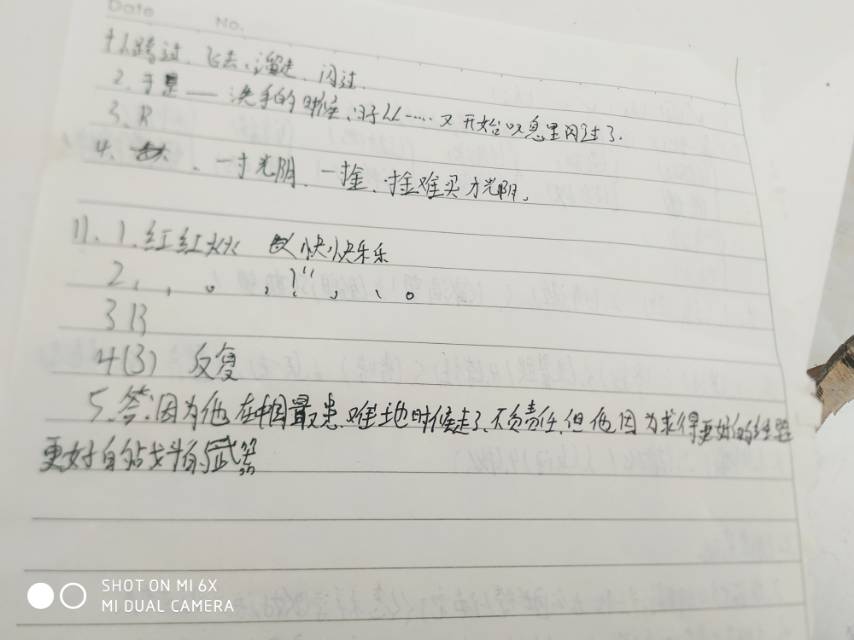 Date No.
1.跨过、飞去、溜走、闪过.
2.于是——洗手的时候,日子从……又开始叹息里闪过了.
3.B
4.、一寸光阴一寸金,寸金难买寸光阴。
11、1.红红火火 快快乐乐
2,,。,!",、。
3 B
4(3) 反复
5.答:因为他在中国最患难地时候走了,不负责任,但他因为求得更好的
更好自站战斗的武器
SHOT ON MI 6X
MI DUAL CAMERA